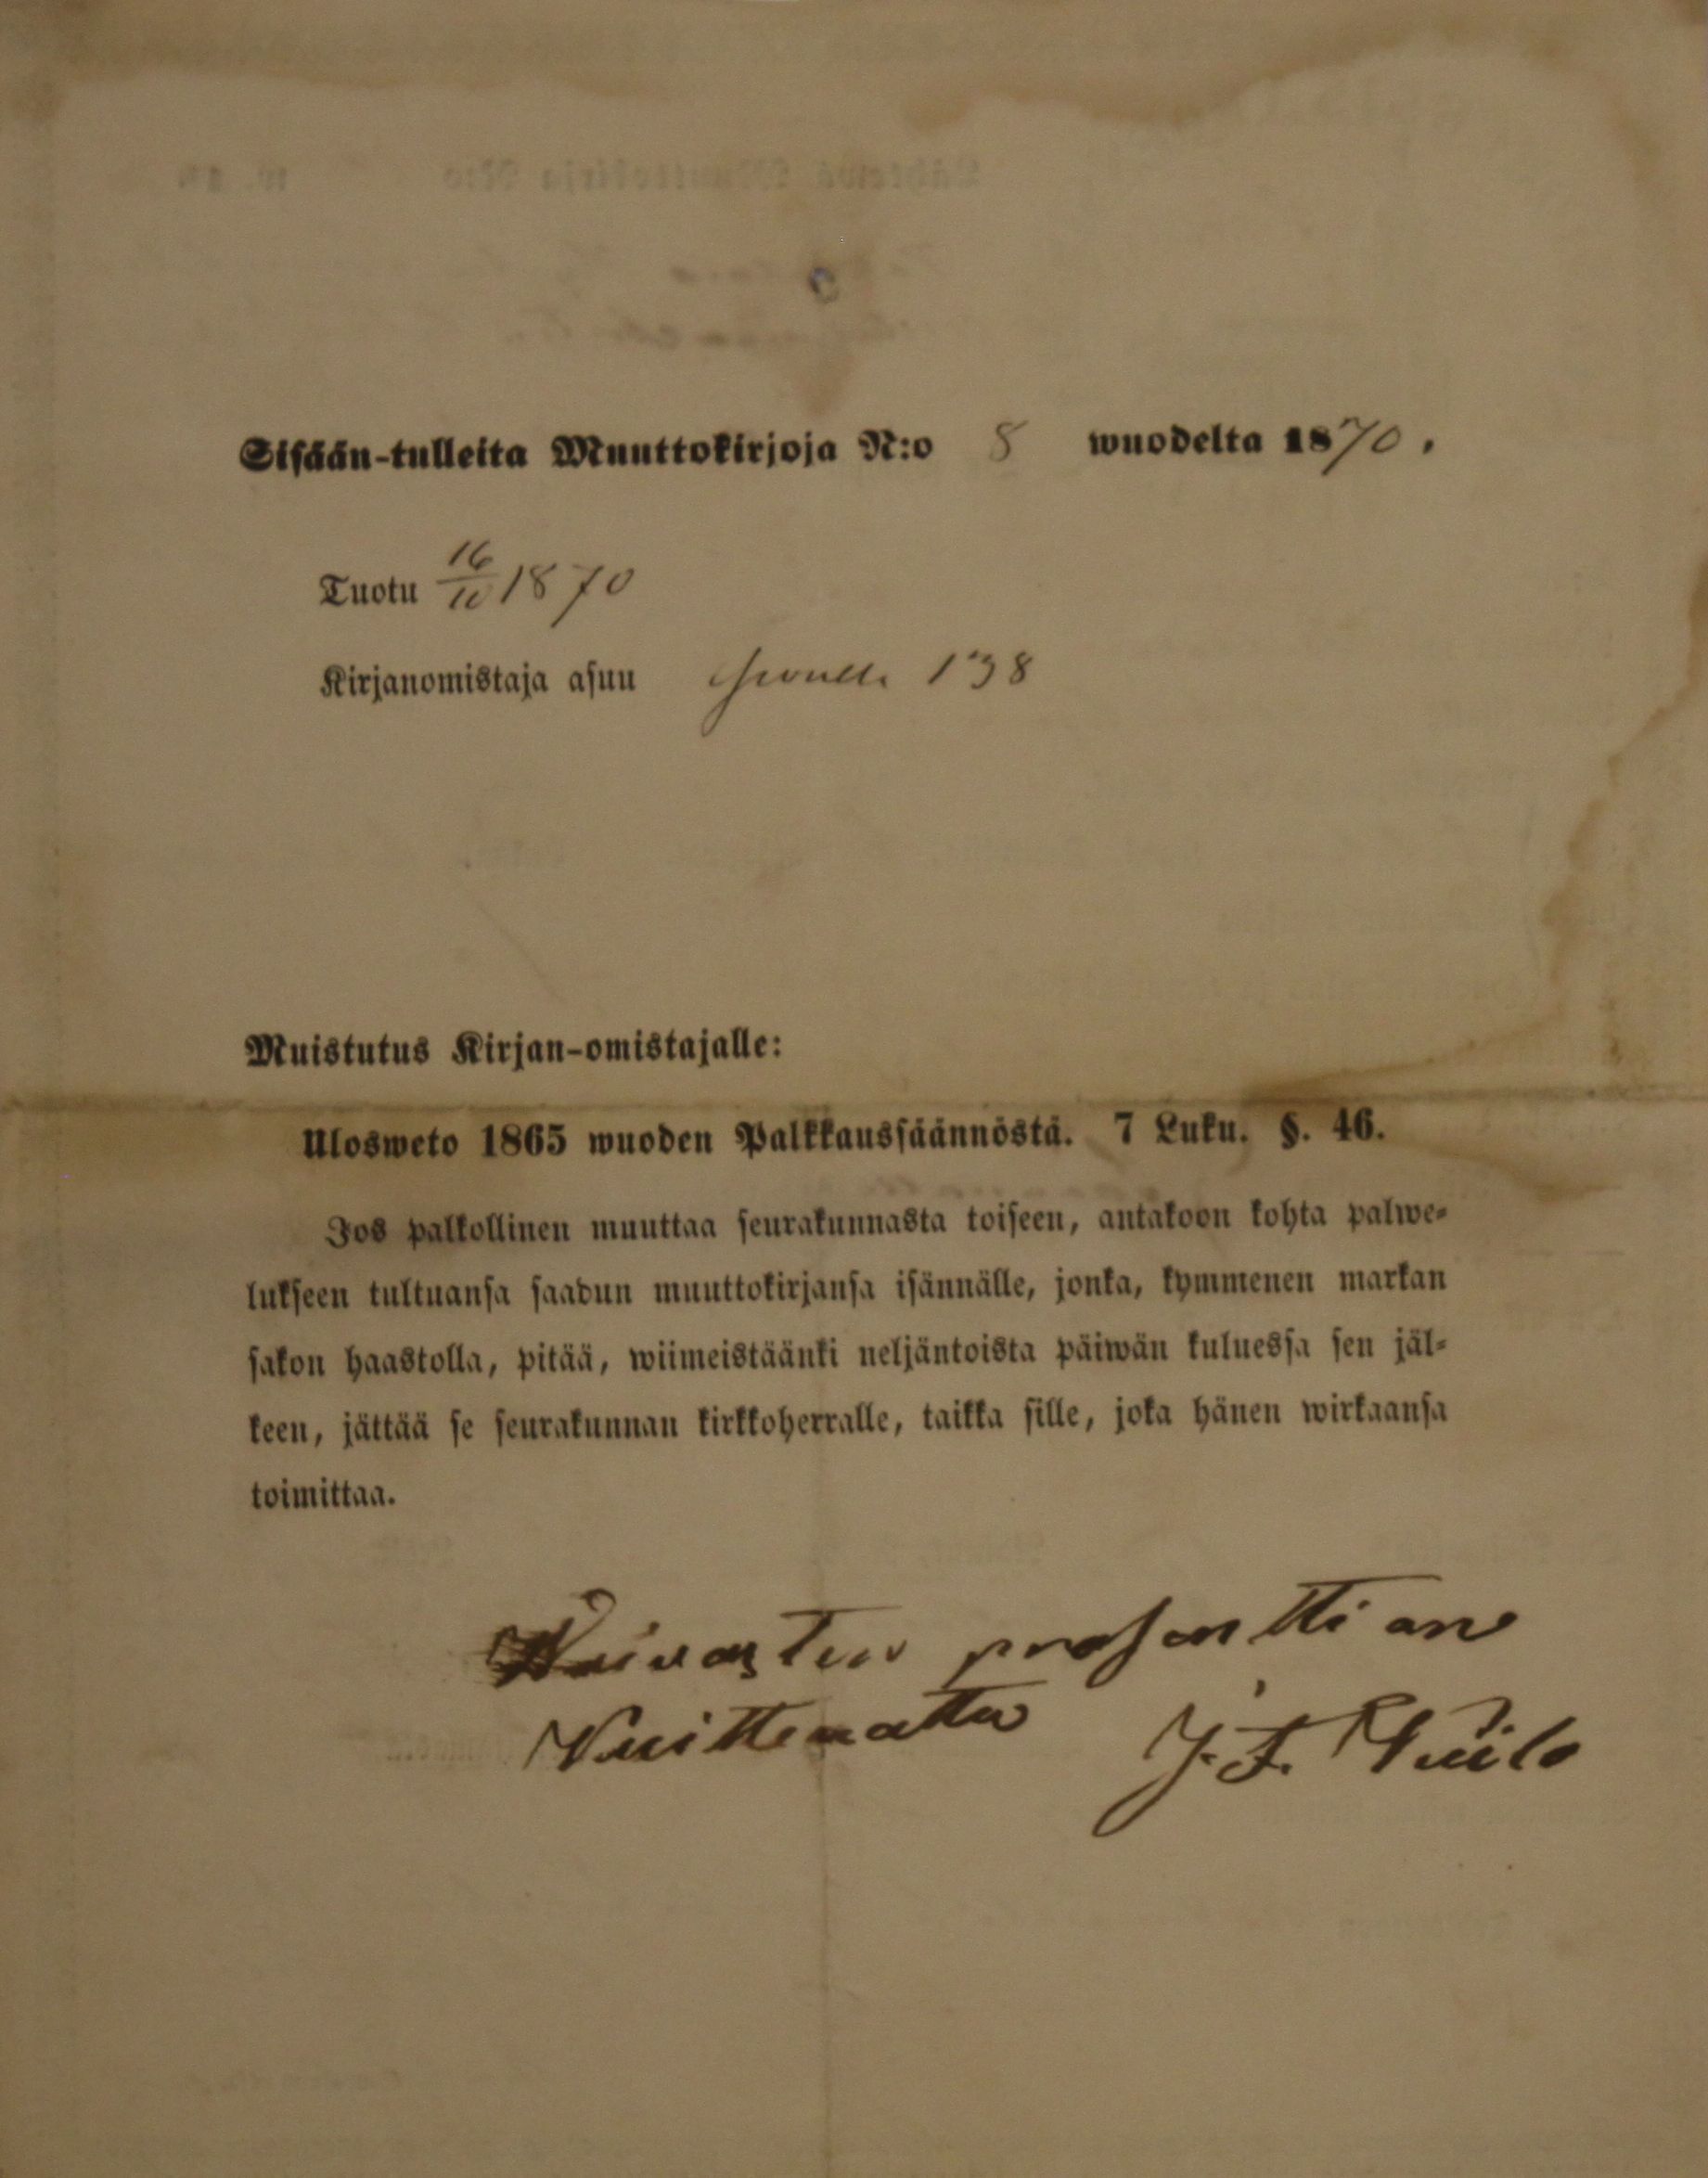 Sisään-tulleita Muuttokirjoja N:o 8 wuodelta 1870.
Tuotu 16/10 1870
Kirjanomistaja asuu sivulla 138
Muistutus Kirjan-omistajalle:
Ulosweto 1865 wuoden Palkkaussäännöstä. 7 Luku. §. 46.
Jos palkollinen muuttaa seurakunnasta toiseen, antakoon kohta palwe-
lukseen tultuansa saadun muuttokirjansa isännälle, jonka, kymmenen markan
sakon haastolla, pitää, wiimeistäänki neljäntoista päiwän kuluessa sen jäl-
keen, jättää se seurakunnan kirkkoherralle, taikka sille, joka hänen wirkaansa
toimittaa.
J. F.